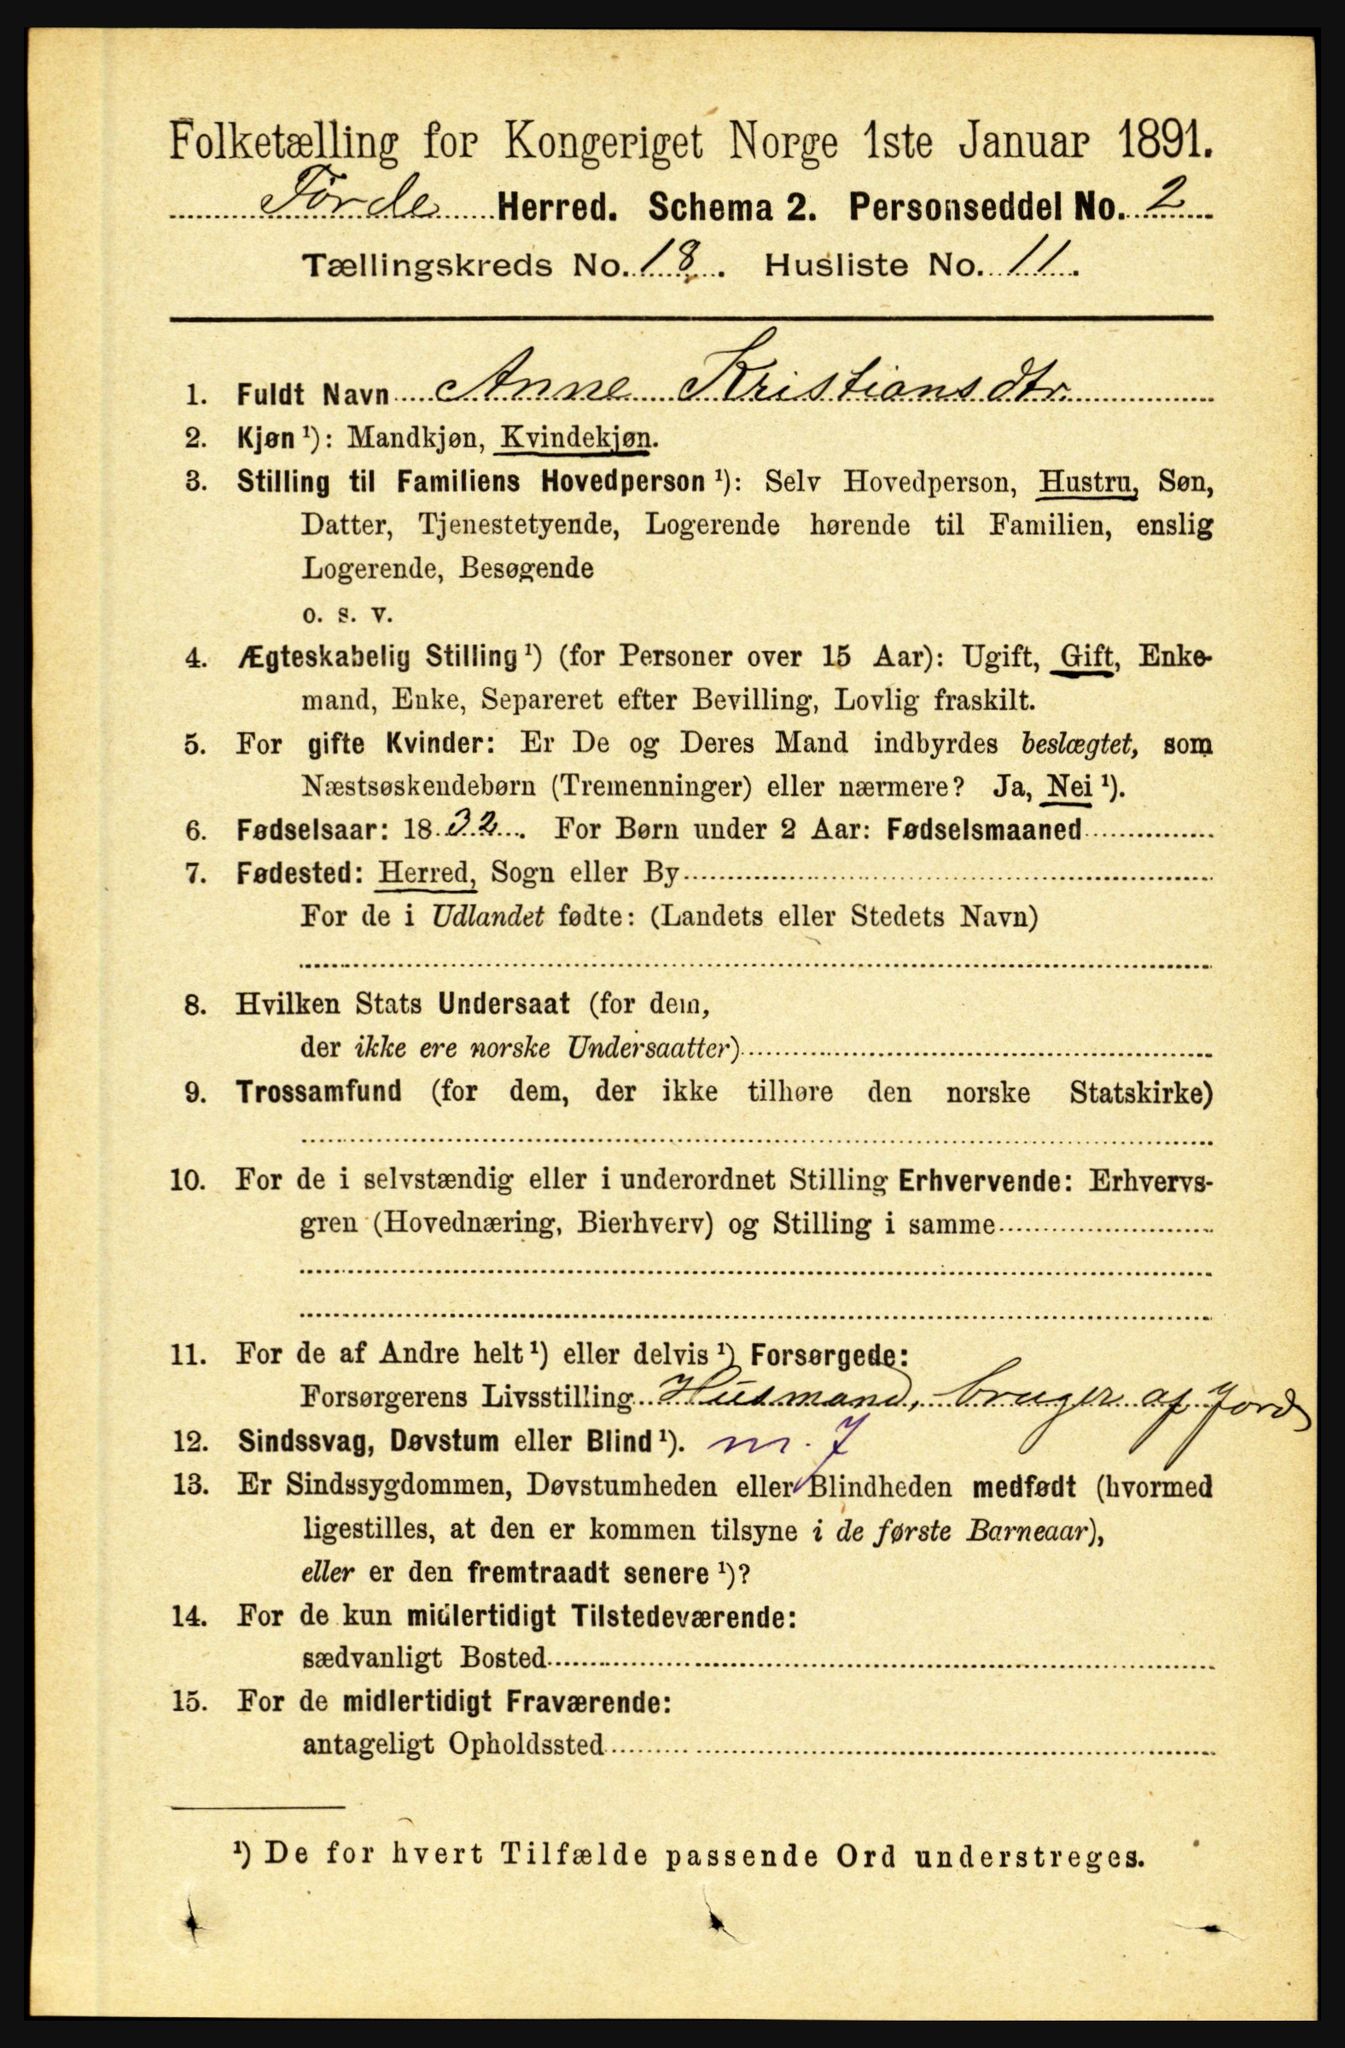 Folketælling for Kongeriget Norge 1ste Januar 1891.
Førde Herred. Schema 2. Personseddel No. 2
Tællingskreds No. 18. Husliste No. 11.
1. Fuldt Navn Anne Kristiansdtr.
2. Kjøn ¹): Mandkjøn, Kvindekjøn.
3. Stilling til Familiens Hovedperson ¹): Selv Hovedperson, Hustru, Søn,
Datter, Tjenestetyende, Logerende hørende til Familien, enslig
Logerende, Besøgende
o. s. v.
4. Ægteskabelig Stilling ¹) (for Personer over 15 Aar): Ugift, Gift, Enke-
mand, Enke, Separeret efter Bevilling, Lovlig fraskilt.
5. For gifte Kvinder: Er De og Deres Mand indbyrdes beslægtet, som
Næstsøskendebørn (Tremenninger) eller nærmere? Ja, Nei ¹).
6. Fødselsaar: 1832. For Børn under 2 Aar: Fødselsmaaned
7. Fødested: Herred, Sogn eller By
For de i Udlandet fødte: (Landets eller Stedets Navn)
8. Hvilken Stats Undersaat (for dem,
der ikke ere norske Undersaatter)
9. Trossamfund (for dem, der ikke tilhøre den norske Statskirke)
10. For de i selvstændig eller i underordnet Stilling Erhvervende: Erhvervs-
gren (Hovednæring, Bierhverv) og Stilling i samme
11. For de af Andre helt ¹) eller delvis ¹) Forsørgede:
Forsørgerens Livsstilling Husmand, bruger af Jord
12. Sindssvag, Døvstum eller Blind ¹). m. J
13. Er Sindssygdommen, Døvstumheden eller Blindheden medfødt (hvormed
ligestilles, at den er kommen tilsyne i de første Barneaar),
eller er den fremtraadt senere ¹)?
14. For de kun midlertidigt Tilstedeværende:
sædvanligt Bosted
15. For de midlertidigt Fraværende:
antageligt Opholdssted
¹) De for hvert Tilfælde passende Ord understreges.